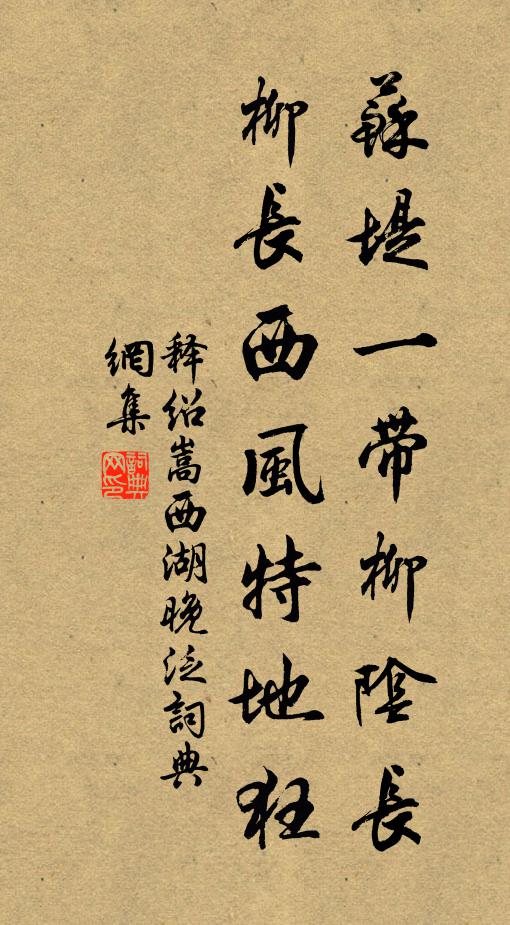 蘇堤一帶柳陰長
柳長西風特地狂
释绍嵩西湖晚泛詞典
網集
詞典
网印